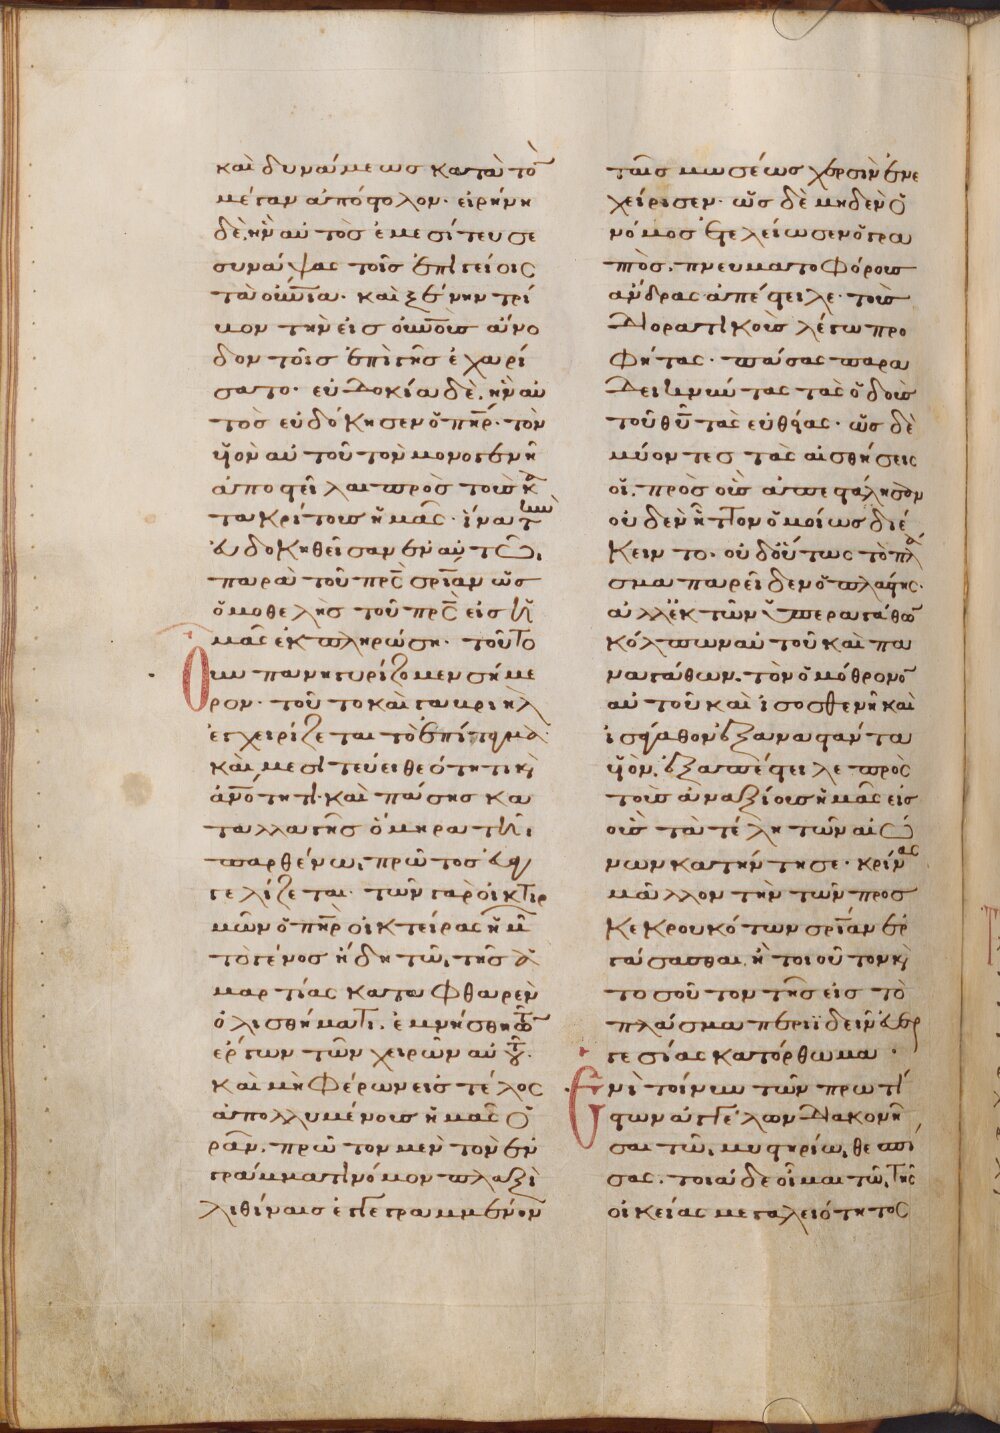 καὶ δυνάμεως κατὰ τὸ
μέγαν ἀπόστολον· εἰρήνη
δὲ, ἣν αὐτὸς ἐμεσίτευσε
συνάψας τοῖς ἐπιγείοις
τὰ οὐνια· καὶ ξένην τρί
μον τὴν εἰς οὐνοὺς ἄνο
δον τοῖς ἐπὶ γῆς ἐχαρί
σατο· εὐδοκία δὲ, ἣν αὐ
τὸς εὐδόκησεν ὁ πηρ· τὸν
υἱὸν αὐτοῦ τὸν μονογενῆ
ἀποστεῖλαι πρὸς τοὺς κα
τακρίτους ἡμᾶς· ἵνα τὴν
εὐδοκηθεῖσαν ἐν αὐτῶ,
παρὰ τοῦ πρς σρίαν ὡς
ὁμοθελὴς τοῦ πρς εἰς ἡ
μᾶς ἐκπληρώση· τοῦτο
Οὖν πανηγυρίζομεν σήμε
ρον· τοῦτο καὶ γαβριὴλ
ἐγχειρίζεται τὸ ἐπίταγμα·
καὶ μεσιτεύει θεότητι κ
ἀνότητι· καὶ πάσης κα
ταλλαγῆς ὅμηρα τῆ
παρθένω, πρῶτος εὐαγ
γελίζεται· τῶν γὰρ οἰκτιρ
μῶν ὁ πηρ οἰκτείρας ἡμῶν
τὸ γένος ἤδη τῶ, τῆς ἁ
μαρτίας καταφθαρὲν
ὀλισθήματι, ἐμνήσθη τῶν
ἔργων τῶν χειρῶν αὐτοῦ·
καὶ μὴ φέρων εἰς τέλος
ἀπολλυμένους ἡμᾶς ὁ
ρᾶν, πρῶτον μὲν τὸν ἐν
γράμμασι νόμον πλαξὶ
λιθίναις ἐγγεγραμμένον
ταῖς μωσέως χερσὶν ἐνε
χείρισεν· ὡς δὲ μηδὲν ὁ
νόμος ἐτελείωσεν ὁ γρα
πτὸς, πνευματοφόρους
ἄνδρας ἀπέστειλε· τοὺς
διορατικοὺς λέγω προ
φήτας· πάσας παρα
δεικνύντας τὰς ὁδοὺς
τοῦ θῦ τὰς εὐθείας· ὡς δὲ
μύοντες τὰς αἰσθήσεις
οἱ, πρὸς οὓς ἀπεστάλησαν
οὐδὲν ἧττον ὁμοίως διέ
κειντο· οὐδ οὕτως τὸ πλά
σμα παρεῖδεν ὁ πλάστης·
ἀλλ ἐκ τῶν ὑπεραγάθων
κόλπων αὐτοῦ καὶ πα
ναγάθων, τὸν ὁμόθρονον
αὐτοῦ καὶ ἰσοσθενῆ καὶ
ἰσάγαθον ἐξαναστάντα
υἱὸν, ἐξαπέστειλε πρὸς
τοὺς ἀναξίους ἡμᾶς εἰς
οὓς τὰ τέλη τῶν αἰώ
νων κατήντησε· κρίνας
μᾶλλον τὴν τῶν προσ
κεκρουκότων σρίαν ἐρ
γάσασθαι, ἢ τοιοῦτον κ
τοσοῦτον τῆς εἰς τὸ
πλάσμα περιϊδεῖν εὐερ
γεσίας κατόρθωμα·
Ἑνὶ τοίνυν τῶν πρωτί
στων ἀγγέλων διακονῆ
σαι τῶ, μυστηρίω, θεσπί
σας, τοιάδε οἶμαι τῶ, τῆς
οἰκείας μεγαλειότητος